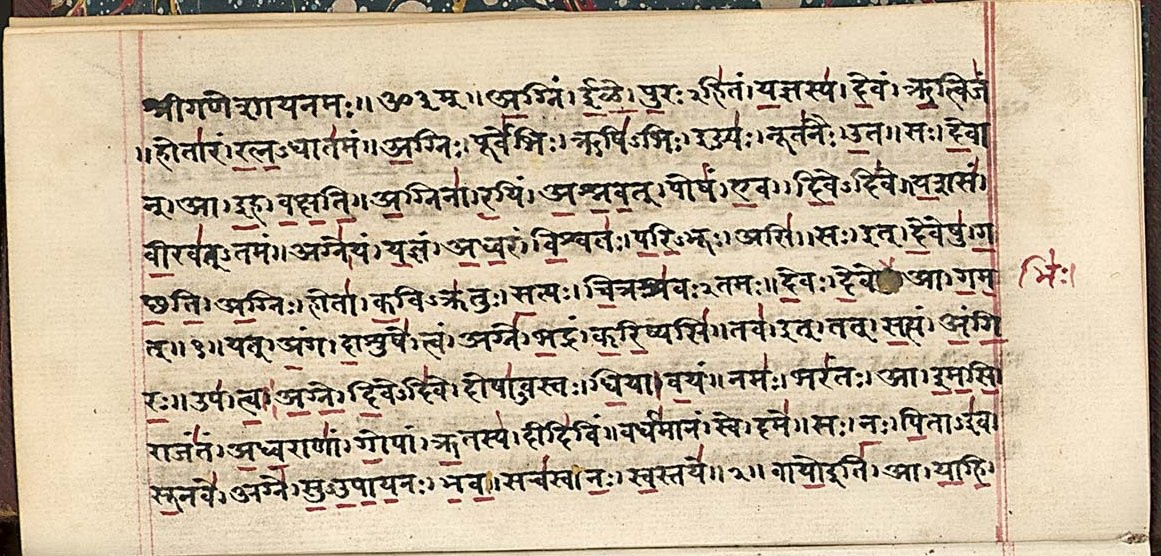 श्रीगणेशायनमः॥ॐ३म्॥अ॒ग्निं।ई॒ळे॒।पु॒रःऽहि॑तं।य॒ज्ञस्य॑।दे॒वं।ऋ॒त्विजं॑
॥होता॑रं।र॒त्न॒ऽधात॑मं॥अ॒ग्निः।पूर्वे॑भिः।ऋषि॑ऽभिः।ईड्यः॑।नूत॑नैः।उ॒त॥सः।दे॒वा
न्।आ।इ॒ह।व॒क्ष॒ति॒॥अ॒ग्निना॑।र॒यिं।अ॒श्न॒व॒त्।पोषं॑।ए॒व।दि॒वेऽदि॑वे॥य॒शसं॑
वी॒रव॑त्ऽतमं॥अग्ने॑।यं।य॒ज्ञं।अ॒ध्व॒रं।वि॒श्वतः॑।प॒रि॒ऽभूः।असि॑॥सः।इत्।दे॒वेषु॑।ग॒
च्छ॒ति॒।अ॒ग्निः।होता॑।क॒विऽक्र॑तुः।स॒त्यः।चि॒त्रश्र॑वःऽतमः॥दे॒वः।दे॒वे आ।ग॒म॒
भिः॑।
त्॥१॥यत्।अं॒ग।दा॒शुषे॑।त्वं।अग्ने॑।भ॒द्रं।क॒रि॒ष्यसि॑॥तव॑।इत्।तत्।स॒त्यं।अं॒गि॒
रः॒॥उप॑।त्वा॒।अ॒ग्ने॒।दि॒वेऽदि॑वे।दोषा॑ऽवस्तः।धि॒या।व॒यं॥नमः॑।भरं॑तः।आ।इ॒म॒सि॒
राजं॑तं।अ॒ध्व॒राणां॑।गो॒पां।ऋ॒तस्य॑।दीदि॑विं॥वर्ध॑मानं।स्वे।दमे॑॥सः।नः॒।पि॒ताऽइ॑व।
सू॒नवे॑।अग्ने॑।सु॒ऽउ॒पा॒य॒नः।भ॒व॒।सच॑स्व।नः॒।स्व॒स्तये॑॥२॥वायो॒इति॑।आ।या॒हि॒।